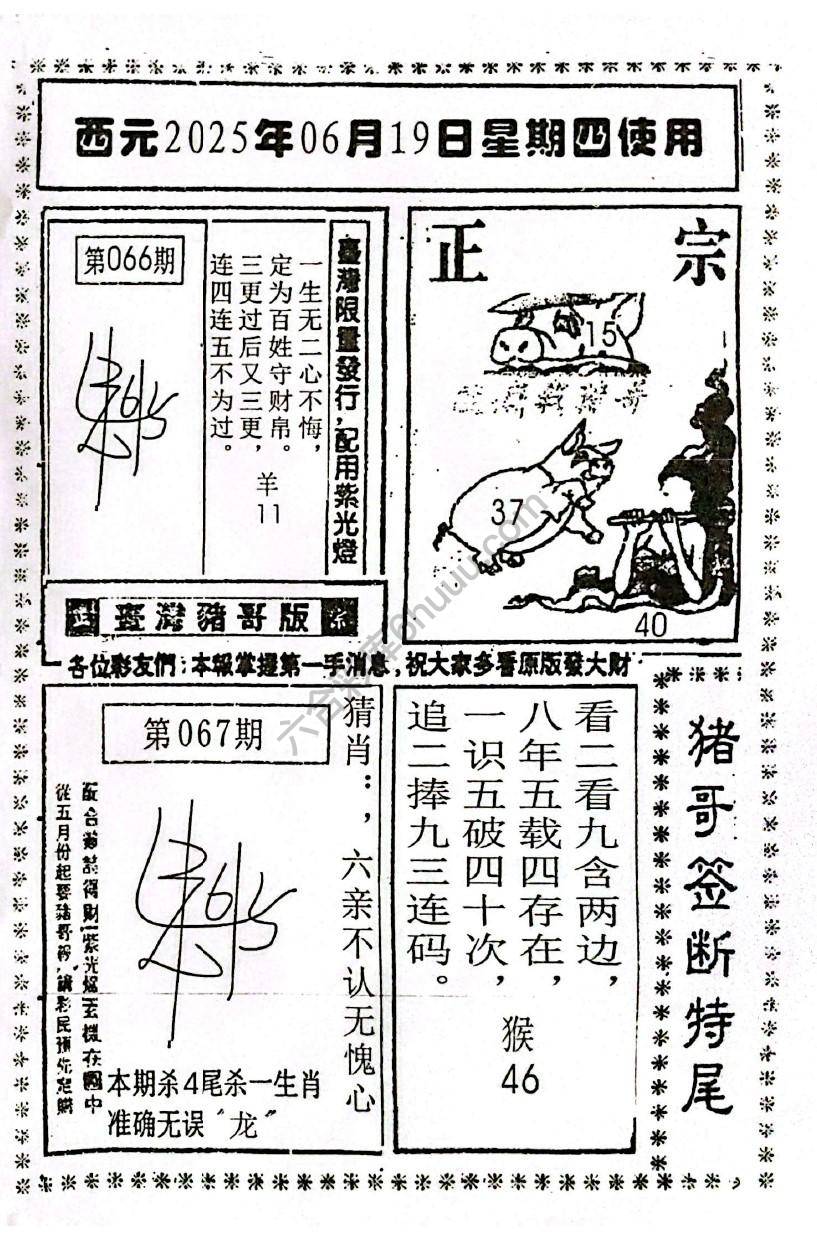 西元2025年06月19日星期四使用
第066期
臺灣限量發行,配用紫光燈
一生无二心不悔,
定为百姓守财帛。
三更过后又三更,
连四连五不为过。
羊
11
正宗
15
37
40
臺灣豬哥版
各位彩友們:本報掌握第一手消息,祝大家多看原版發大財
第067期
猜肖:,六亲不认无愧心
從五月份起要豬哥報,請彩民預先定購
本期杀4尾杀一生肖
准确无误“龙”
看二看九含两边,
八年五载四存在,
一识五破四十次,
追二捧九三连码。
猴
46
猪哥签断特尾
六合彩库6huuu.com